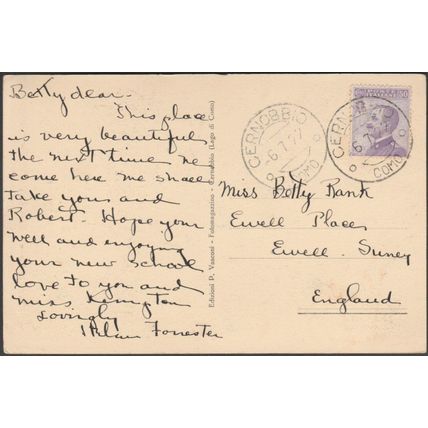 Betty dear-
This place
is very beautiful
the next time we
come here we shall
take you and
Robert. Hope your
well and enjoying
your new school
love to you and
miss Kempton
Lovingly
Forrester
Edizioni P. Vasconi - Fotomagazzino - Cernobbio (Lago di Como)
CERNOBBIO
6.7.27
COMO
CERNOBBIO
6.7.
COMO
50
Miss Betty Rank
Ewell Place
Ewell. Surrey
England